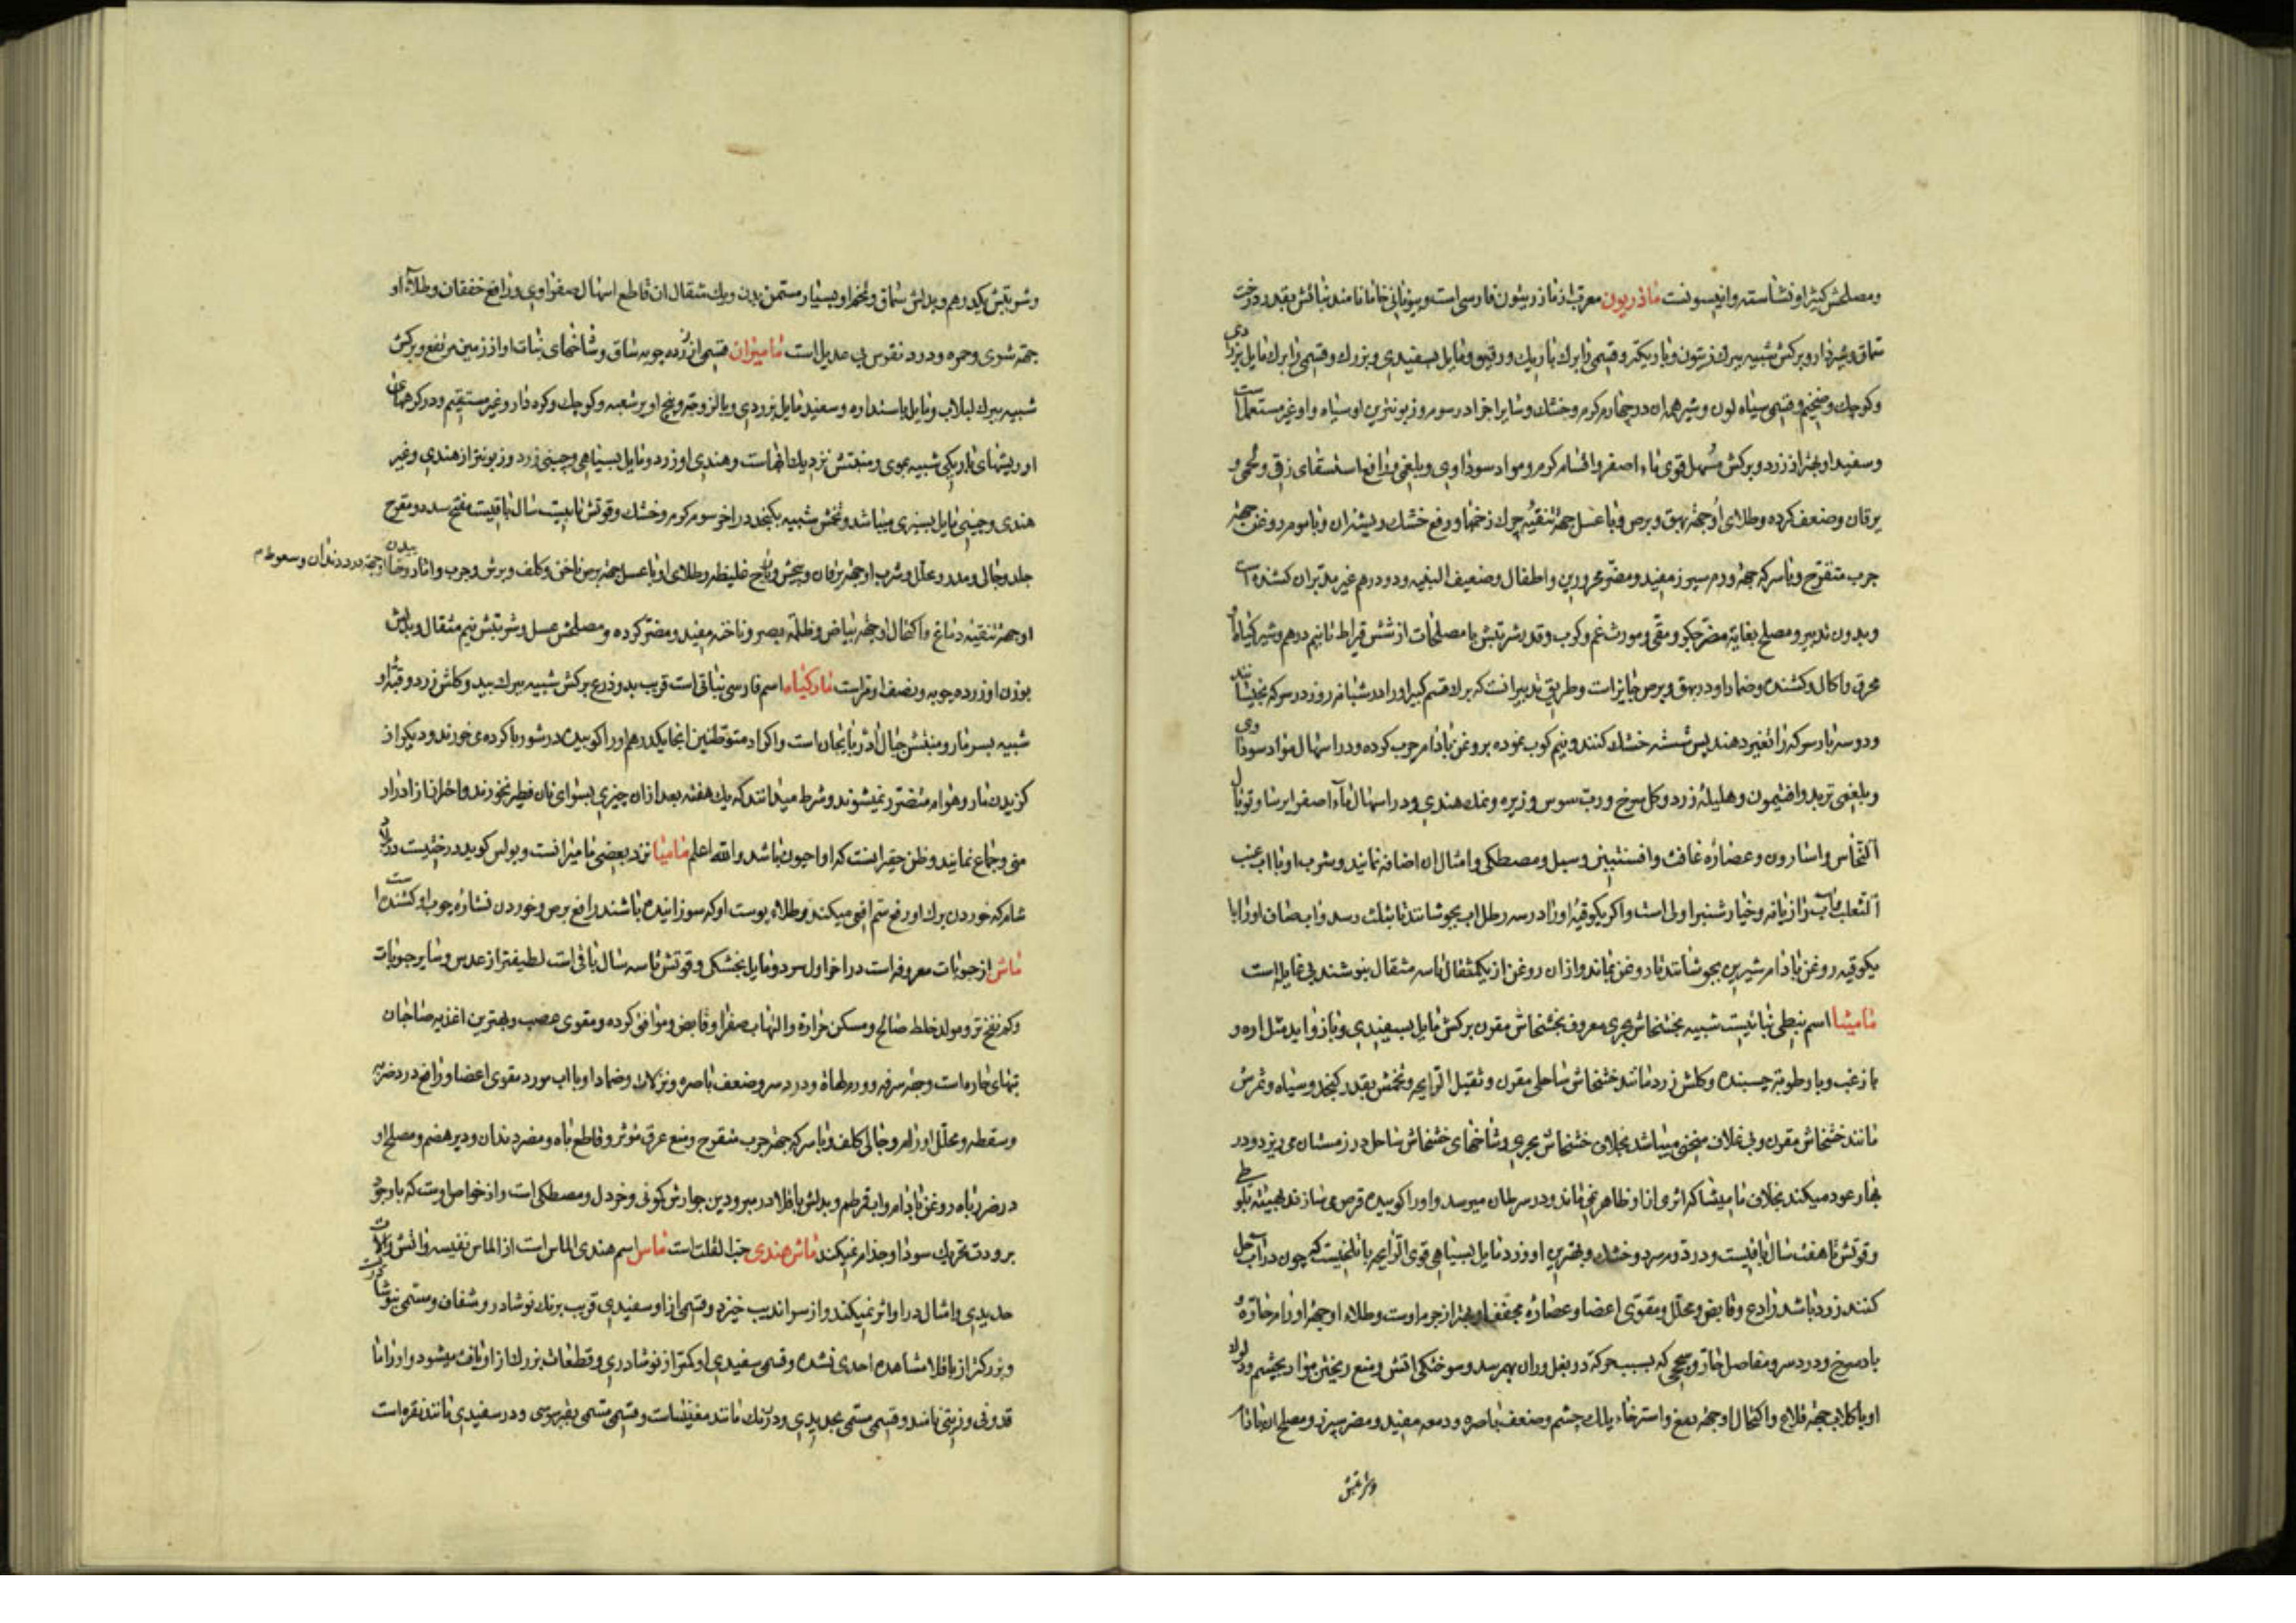 ومصلحش کثیرا و نشاسته و انیسونست ماذریون معرب از مازریئون فارسی است و بیونانی خامانامند نباتش بقدر درخت
سماق و شیردار و برکش شبیه ببرك زیتون و باریکتر و قسمی را برك باریك و رقیق و مایل بسفیدی و بزرك و قسمی را برك مایل بزردی
و کوچك و ضخیم و قسمی سیاه لون و شیر همه ان در چهارم کرم و خشك و سایر اجزا در سوم و زبونترین او سیاه و او غیر مستعملست
و سفید او بهتر از زرد و برکش مسهل قوی ماء اصفر و اقسام کرم و مواد سوداوی و بلغمی و رافع استسقای زقی و لحمی و
یرقان و ضعف کرده و طلای او جهة بهق و برص و با عسل جهة تنقیه چرك زخمها و رفع خشك ریشه ان و با موم روغن جهة
جرب متقرح و با سرکه جهة ورم سپرز مفید و مضر محرورین و اطفال و ضعیف البنیه و دو درهم غیر مدبر ان کشنده است
و بدون تدبیر و مصلح بغایة مضر جکر و مقی و مورث غم و کرب و قدر شربتش با مصلحات از شش قیراط تا نیم درهم و شیر کیاه او
محرق و اکال و کشنده و ضماد او در بهق و برص جایز است و طریق تدبیر انست که برك قسم کبیر او را در شبانه روز در سرکه بخیسانند
و دو سه بار سرکه را تغیر دهند پس شسته خشك کنند و نیم کوب نموده بروغن بادام چرب کرده و در اسهال مواد سوداوی
و بلغمی تربد و افتیمون و هلیلهٔ زرد و کل سرخ و رب سوس و زیره و نمك هندی و در اسهال ماء اصفر ایرسا و توبال
النحاس و اسارون و عصارهٔ غافث و افسنتین و سنبل و مصطکی و امثال ان اضافه نمایند و شرب او با اب عنب
الثعلب و اب رازیانه و خیار شنبر اولی است و اکر یکوقیهٔ او را در سه رطل اب بجوشانند تا بثلث رسد و اب صاف او را با
یکوقیه روغن بادام شیرین بجوشانند تا روغن بماند و ازان روغن از یکمثقال تا سه مثقال بنوشند بی غایله است
مامیثا اسم نبطی نباتیست شبیه بخشخاش بحری معروف بخشخاش مقرن برکش مایل بسفیدی و باز واید مثل اره و
با زغب و با رطوبة چسبنده و کلش زرد مانند خشخاش ساحلی مقرن و ثقیل الرایحه و تخمش بقدر کنجد و سیاه و ثمرش
مانند خشخاش مقرن و بی غلاف منحنی میباشد بخلاف خشخاش بحری و شاخهای خشخاش ساحل در زمستان می ریزد و در
بهار عود میکند بخلاف مامیثا که اثری از او ظاهر نمی ماند و در سرطان میرسد و او را کوبیده قرص می سازند بهیئة بلوطی
و قوتش تا هفت سال باقیست و در دوم سرد و خشك و بهترین او زرد مایل بسیاهی قوی الرایحه با تلخیست که چون در اب حل
کنند زرد باشد رادع و قابض و محلل و مقوی اعضا و عصارهٔ مجفف او بهتر از جرم اوست و طلاء او جهة اورام حاره و
باد سرخ و درد سر و مفاصل حار و سحجی که بسبب حرکة در بغل و ران بهم رسد و سوختکی اتش و منع ریختن مواد بچشم و ذرور
او با کلاب جهة قلاع و اکتحال او جهة دمعه و استرخاء پلك چشم و ضعف باصره و دمعه مفید و مضر سپرز و مصلح ان بادام
و شربتش
و شربتش یکدرهم و بدلش سماق و تخم او بسیار مسمن بدن و یك مثقال ان قاطع اسهال صفراوی و رافع خفقان و طلاء او
جهة شری و حمره و درد نقرس بی عدیل است مامیران قسمی از زرده چوبه ساق و شاخهای نبات او از زمین مرتفع و برکش
شبیه ببرك لبلاب و مایل باستداره و سفید مایل بزردی و با لزوجة و بیخ او پر شعبه و کوچك و کره دار و غیر مستقیم و در کرههای
او ریشهای باریکی شبیه بموی و منبتش نزدیك ابهاست و هندی او زرد و مایل بسیاهی و چینی زرد و زبونتر از هندی و غیر
هندی و چینی مایل بسبزی میباشد و تخمش شبیه بکنجد در اخر سوم کرم و خشك و قوتش تا بیست سال باقیست مفتح سدد و مقرح
جلد و جالی و مدر و محلل و شرب او جهة یرقان و پیچش و ریاح غلیظه و طلای او با عسل جهة برص ناخن و کلف و برش و جرب و اثار بدن و مضغ او جهة درد دندان و سعوط
او جهة تنقیه دماغ و اکتحال او جهة بیاض و ظلمة بصر و ناخنه مفید و مضر کرده و مصلحش عسل و شربتش نیم مثقال و بدلش
بوزن او زرده چوبه و نصف او مراست مارکیاه اسم فارسی نباتی است قریب بدو ذرع برکش شبیه ببرك بید و کلش زرد و قبهٔ او
شبیه بسر مار و منبتش جبال اذربایجان است و اکراد متوطنین انجا یکدرهم او را کوبیده در شوربا کرده می خورند و دیکر از
کزیدن مار و هوام متضرر نمیشوند و شرط میدانند که یك هفته بعد ازان چیزی بسوای نان فطیر نخورند و احتراز از ادرار
منی و جماع نمایند و ظن حقیر اینست که او اجیون باشد والله اعلم مامینا نزد بعضی مامیرانست و پولس کوید درختیست در بلاد
شام که خوردن برك او رفع سم افعی میکند و طلاء پوست او که سوزانیده باشند رافع برص و خوردن نشارهٔ چوب او کشنده است
ماش از حبوبات معروفه است در اخر اول سرد و مایل بخشکی و قوتش تا سه سال باقی است لطیفتر از عدس و سایر حبوبات
و کم نفخ تر و مولد خلط صالح و مسکن حرارة و التهاب صفرا و قابض و موافق کرده و مقوی عصب و بهترین اغذیه صاحبان
تبهای حاره است و جهة سرفه و ورم لهاة و درد سر و ضعف باصره و نزلات و ضماد او با اب مورد مقوی اعضا و رافع درد ضربه
و سقطه و محلل اورام و جالی کلف و با سرکه جهة جرب متقرح و منع عرق موثر و قاطع باه و مضر دندان و دیر هضم و مصلح او
در ضرر باه روغن بادام و اب قرطم و بدلش باقلا در مبرودین جوارش کمونی و خردل و مصطکی است و از خواص اوست که با وجود
برودت تحریك سودا و جذام نمیکند ماش هندی حب القلت است ماس اسم هندی الماس است از الماس نفیسه و اتش و الات
حدیدی و امثال در او اثر نمیکند و از سراندیب خیزد و قسمی از او سفیدی قریب برنك نوشادر و شفاف و مسمی بنوشادریست
و بزرکتر از باقلا مشاهده احدی نشده و قسمی سفیدی او کمتر از نوشادری و قطعات بزرك از او یافت میشود و او را ما
قدونی و زیتی نامند و قسمی مسمی بحدیدی و در رنك مانند مغنیسات و قسمی مسمی بقبرسی و در سفیدی مانند نقره است